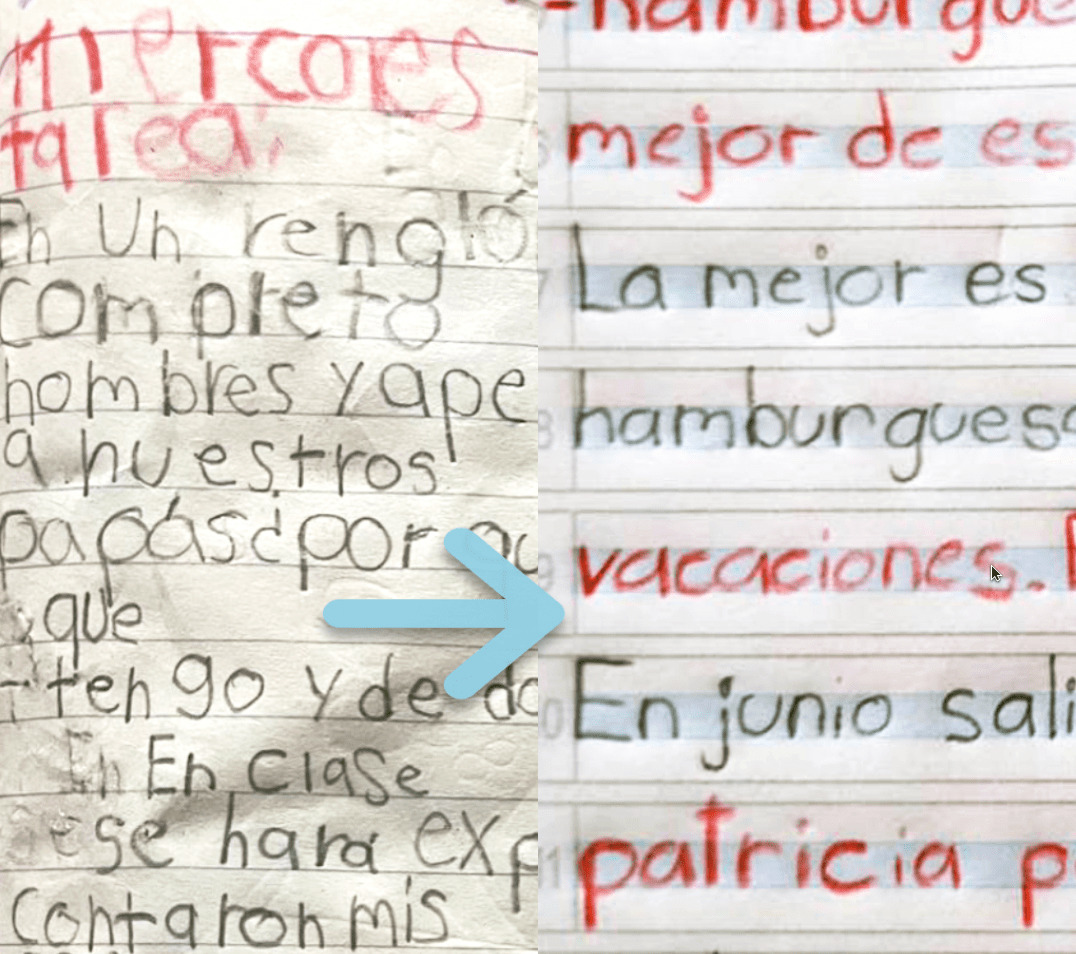 miercoes
tarea:
En un rengló
completo
nombres y ape
a nuestros
papás ¿por
que
- tengo y de do
En clase
se hara exp
contaron mis
-hamburgue
mejor de es
La mejor es
hamburguesa
vacaciones.
En junio sali
patricia p